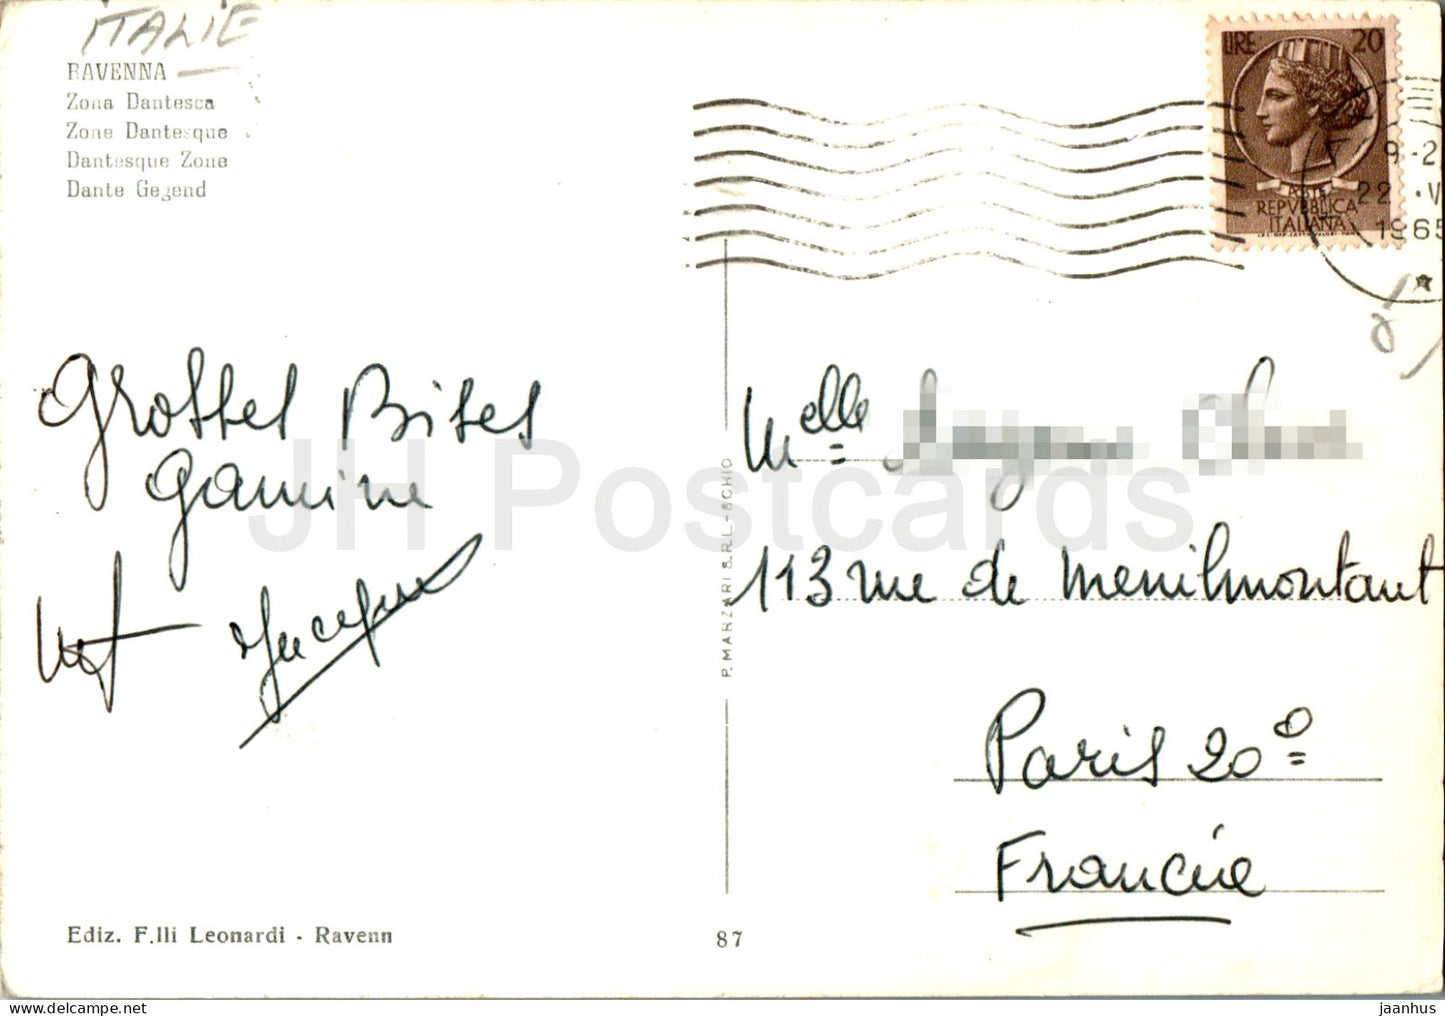 ITALIE
RAVENNA
Zona Dantesca
Zone Dantesque
Dantesque Zone
Dante Gegend
LIRE 20
POSTE
REPVBBLICA
ITALIANA
9-2
22 · V
1965
Grosses Bises
Gamine
Jacques
Melle
113 rue de Menilmontant
Paris 20e
Francie
P. MARZARI S.R.L. - SCHIO
Ediz. F.lli Leonardi - Ravenn
87
JH Postcards
jaanhus | Delcampe.net